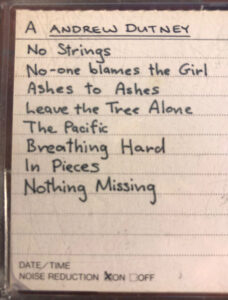 A ANDREW DUTNEY
No Strings
No-one blames the Girl
Ashes to Ashes
Leave the Tree Alone
The Pacific
Breathing Hard
In Pieces
Nothing Missing
DATE/TIME
NOISE REDUCTION ☒ON ☐OFF